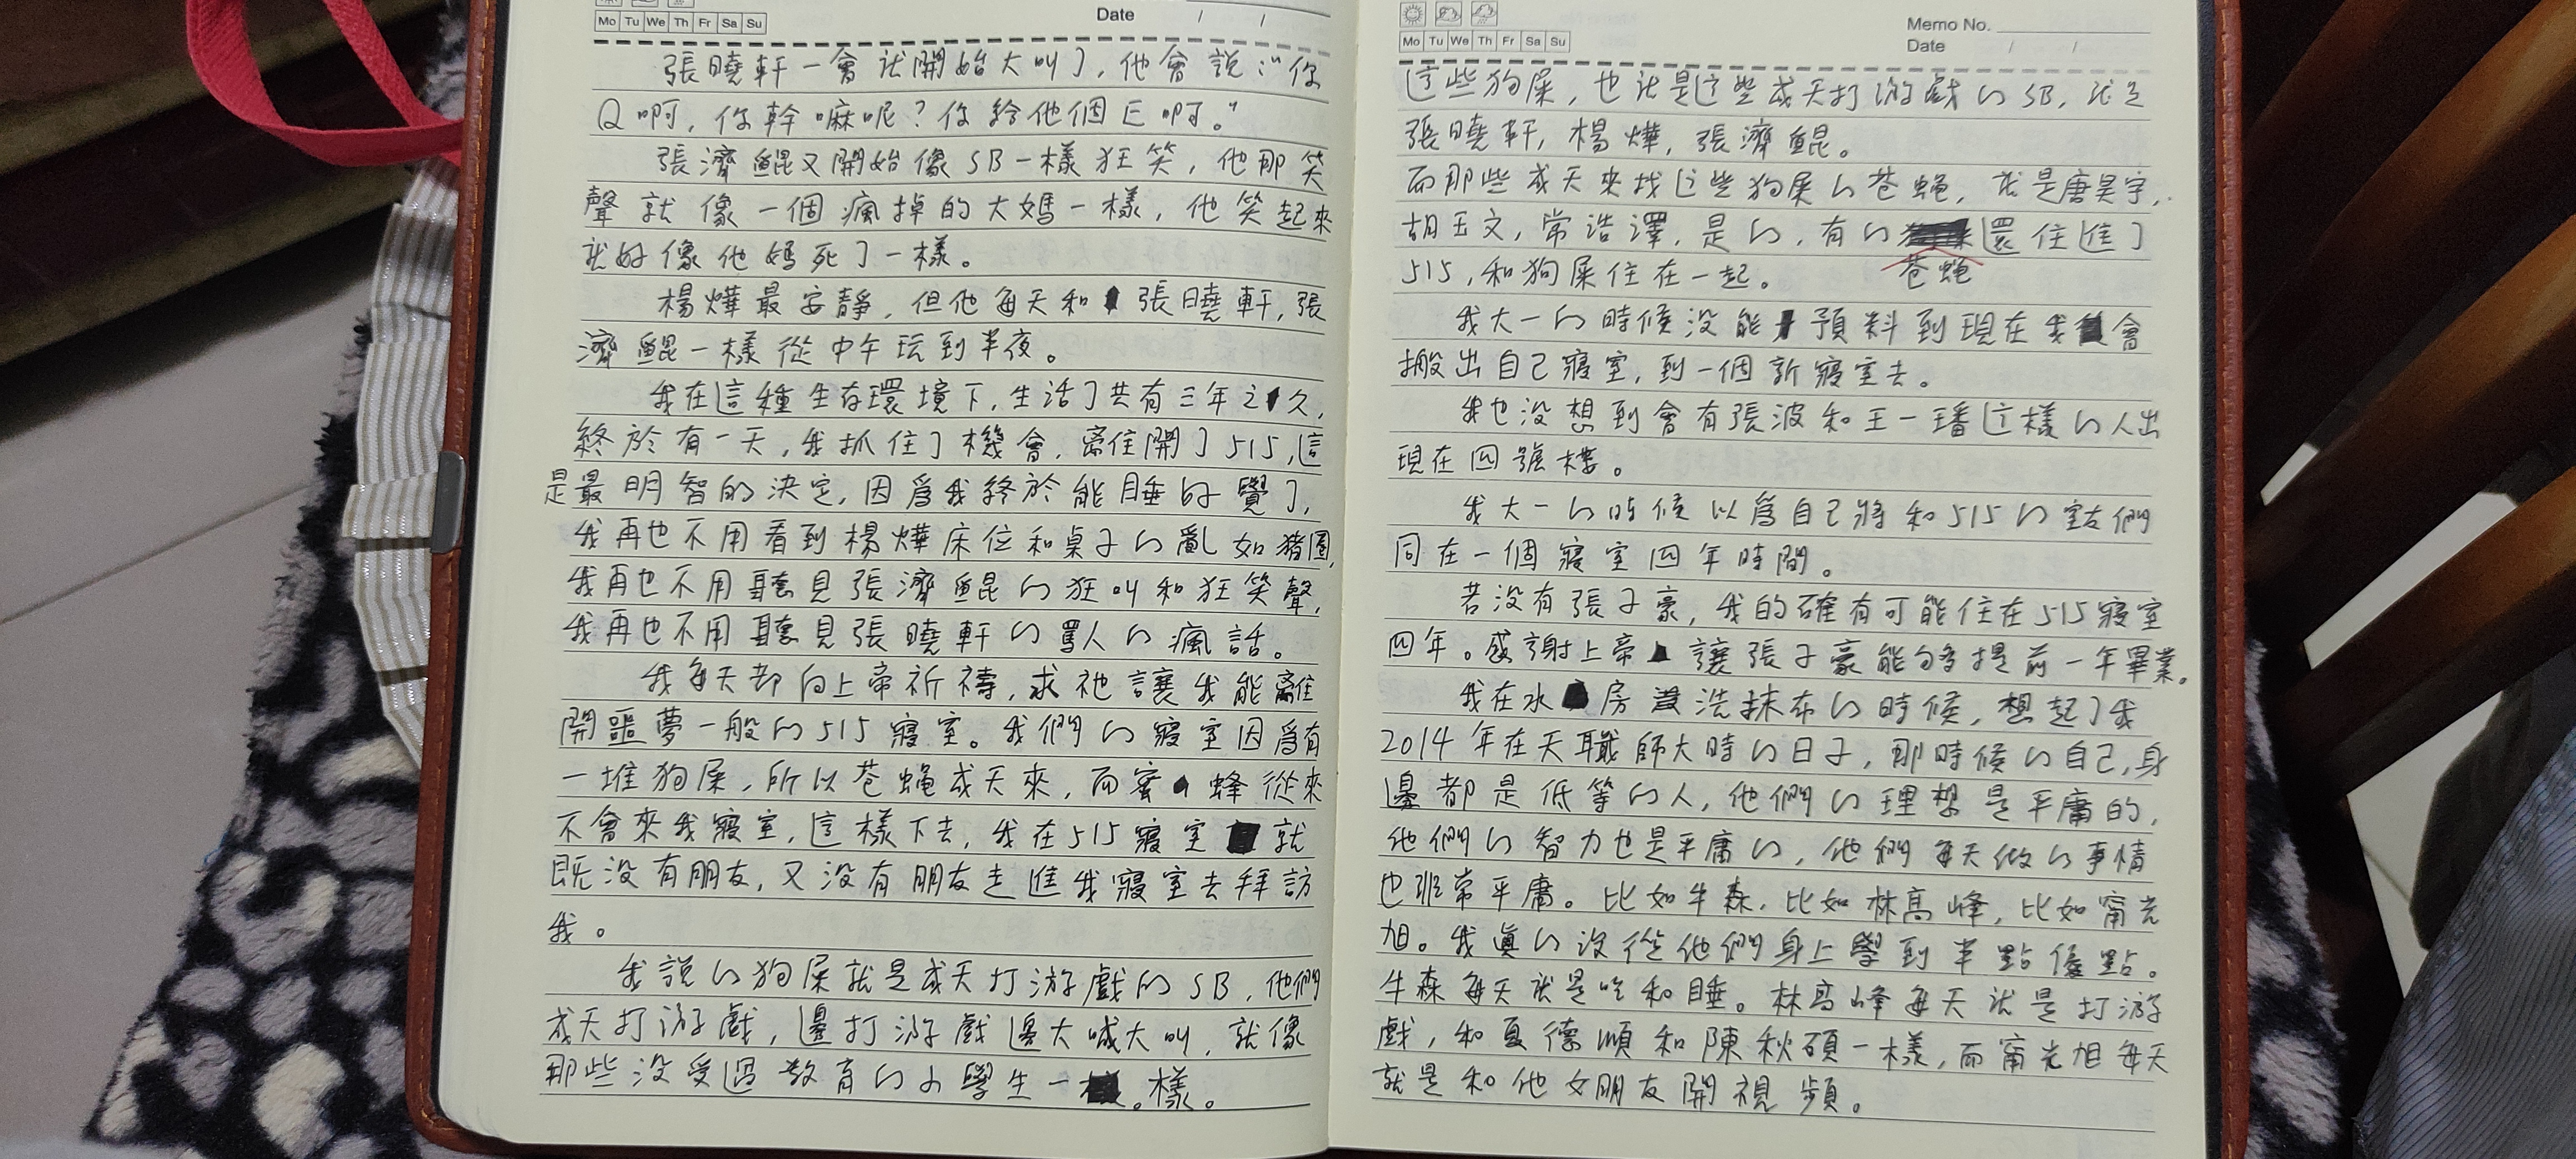 Mo Tu We Th Fr Sa Su
Date / /
張曉軒一會就開始大叫了，他會說："你
Q啊，你幹嘛呢？你給他個E啊。"
張濟鯤又開始像SB一樣狂笑，他那笑
聲就像一個瘋掉的大媽一樣，他笑起來
就好像他媽死了一樣。
楊燁最安靜，但他每天和張曉軒，張
濟鯤一樣從中午玩到半夜。
我在這種生存環境下，生活了共有三年之久，
終於有一天，我抓住了機會，離開了515，這
是最明智的決定，因爲我終於能睡好覺了，
我再也不用看到楊燁床位和桌子的亂如猪圈，
我再也不用聽見張濟鯤的狂叫和狂笑聲，
我再也不用聽見張曉軒的罵人的瘋話。
我每天都向上帝祈禱，求祂讓我能離
開噩夢一般的515寢室。我們的寢室因爲有
一堆狗屎，所以苍蝇成天來，而蜜蜂從來
不會來我寢室，這樣下去，我在515寢室就
既没有朋友，又没有朋友走進我寢室去拜訪
我。
我說的狗屎就是成天打游戲的SB，他們
成天打游戲，邊打游戲邊大喊大叫，就像
那些没受過教育的小學生一樣。
Mo Tu We Th Fr Sa Su
Memo No.
Date / /
這些狗屎，也就是這些成天打游戲的SB，就是
張曉軒，楊燁，張濟鯤。
而那些成天來找這些狗屎的苍蝇，就是唐昊宇，
胡玉文，常浩澤，是的，有的苍蝇還住進了
515，和狗屎住在一起。
我大一的時候没能預料到現在我會
搬出自己寢室，到一個新寢室去。
我也没想到會有張波和王一璠這樣的人出
現在四號樓。
我大一的時候以爲自己將和515的室友們
同在一個寢室四年時間。
若没有張子豪，我的確有可能住在515寢室
四年。感謝上帝讓張子豪能够提前一年畢業。
我在水房洗抹布的時候，想起了我
2014年在天職師大時的日子，那時候的自己，身
邊都是低等的人，他們的理想是平庸的，
他們的智力也是平庸的，他們每天做的事情
也非常平庸。比如牛森，比如林高峰，比如甯光
旭。我真的没從他們身上學到半點優點。
牛森每天就是吃和睡。林高峰每天就是打游
戲，和夏德順和陳秋碩一樣，而甯光旭每天
就是和他女朋友開視頻。